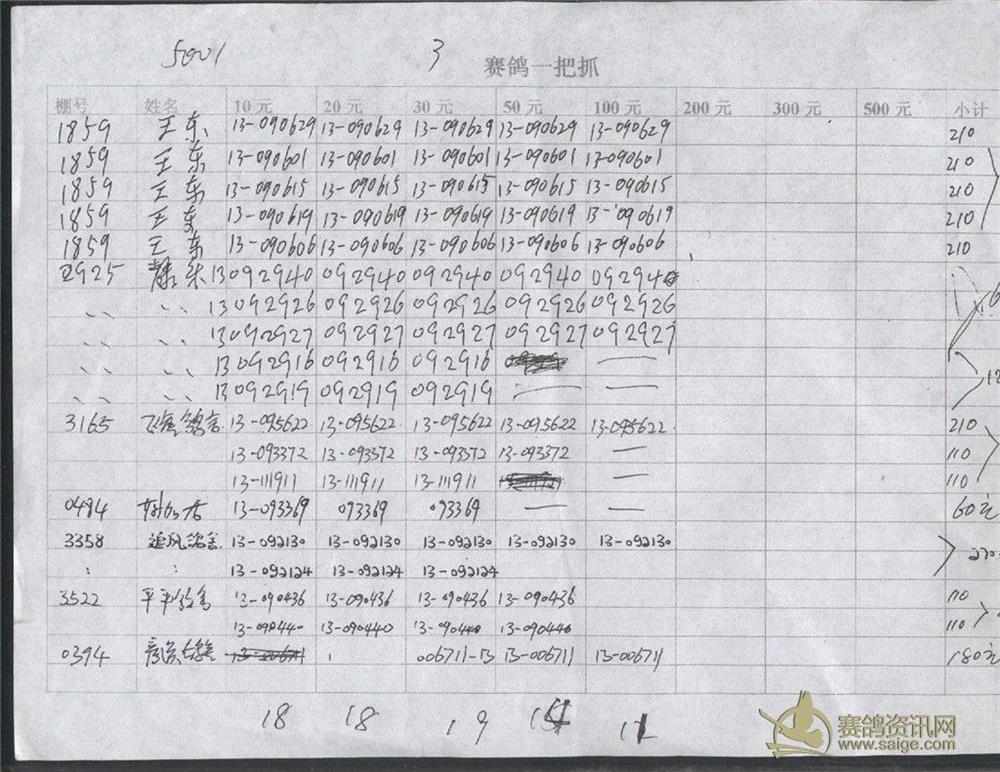 5001 3 赛鸽一把抓
棚号 姓名 10元 20元 30元 50元 100元 200元 300元 500元 小计
1859 王东 13-090629 13-090629 13-090629 13-090629 13-090629 210
1859 王东 13-090601 13-090601 13-090601 13-090601 13-090601 210
1859 王东 13-090615 13-090615 13-090615 13-090615 13-090615 210
1859 王东 13-090619 13-090619 13-090619 13-090619 13-090619 210
1859 王东 13-090606 13-090606 13-090606 13-090606 13-090606 210
2925 13092940 092940 092940 092940 092940
、、 、、 13092926 092926 092926 092926 092926
、、 、、 13092927 092927 092927 092927 092927
、、 、、 13092916 092916 092916 —
、、 、、 13092919 092919 092919 — —
3165 13-095622 13-095622 13-095622 13-095622 13-095622 210
13-093372 13-093372 13-093372 13-093372 — 110
13-111911 13-111911 13-111911 — 110
0484 13-093369 093369 093369 — — 60元
3358 追风鸽舍 13-092130 13-092130 13-092130 13-092130 13-092130 270
: : 13-092124 13-092124 13-092124
3522 平平鸽舍 13-090436 13-090436 13-090436 13-090436 110
13-090440 13-090440 13-090440 13-090440 110
0394 006711-13 13-006711 13-006711 180元
18 18 19
赛鸽资讯网
www.saige.com